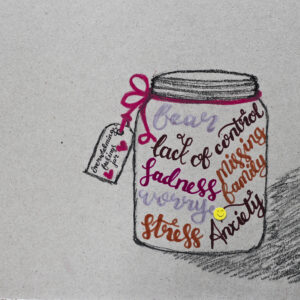 overwhelming
feelings
fear
lack of control
missing
sadness family
worry
stress Anxiety